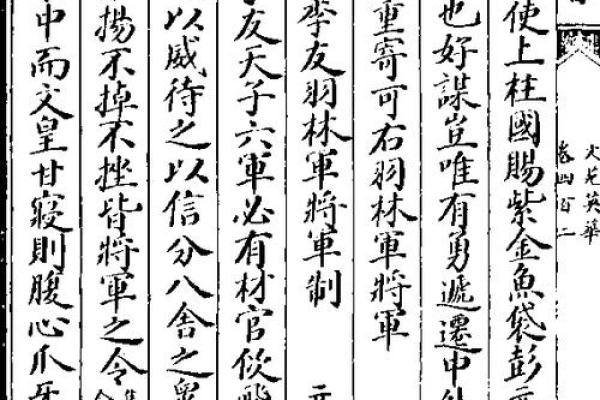 文苑英華
卷四百二
使上柱國賜紫金魚袋彭
也好謀豈唯有勇遞遷中外
重寄可右羽林軍將軍
李友羽林軍將軍制
友天子六軍必有材官佽飛
以威待之以信分八舍之
揚不掉不挫皆將軍之令
中而文皇甘寢則腹心爪牙